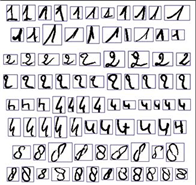 1 1 1 1 1 1 1 1 1 1 1
1 1 1 1 1 1 1 1 1 1
2 2 2 2 2 2 2 2 2 2 2
2 2 2 2 2 2 2 2 2 2 2 2
4 4 4 4 4 4 4 4 4 4 4 4 4
4 4 4 4 4 4 4 4 4 4 4
8 8 8 8 8 8 8 8 8
8 8 8 8 8 8 8 8 8 8 8 8 8